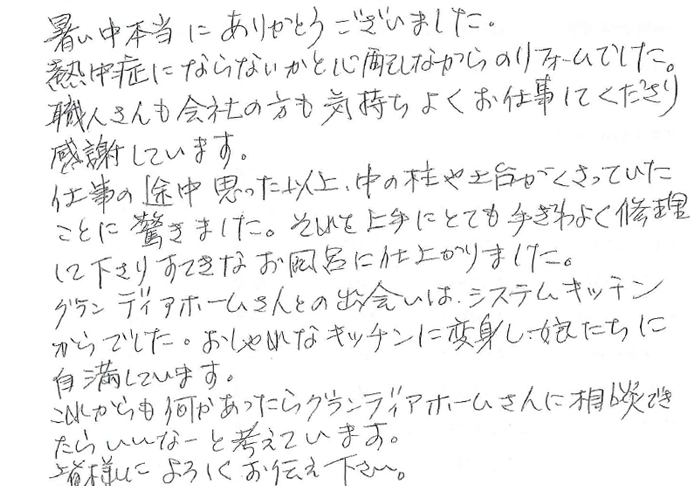 暑い中本当にありがとうございました。
熱中症にならないかと心配しながらのリフォームでした。
職人さんも会社の方も気持ちよくお仕事してくださり
感謝しています。
仕事の途中思った以上、中の柱や土台がくさっていた
ことに驚きました。それを上手にとても手ぎわよく修理
して下さりすてきなお風呂に仕上がりました。
グランディアホームさんとの出会いは、システムキッチン
からでした。おしゃれなキッチンに変身し、娘たちに
自満しています。
これからも何かあったらグランディアホームさんに相談でき
たらいいなーと考えています。
皆様によろしくお伝え下さい。